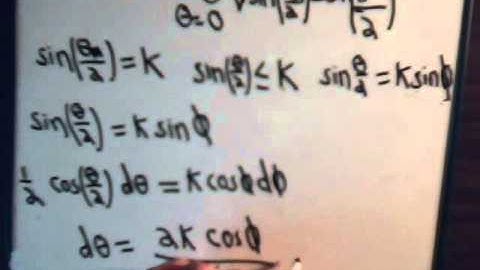 θ=0 sin(/2) (/2)
sin(θm/2)=K sin(θ/2)≤K sin θ/2=K sin ϕ
sin(θ/2)=K sin ϕ
1/2 cos(θ/2) dθ=K cosϕ dϕ
dθ= 2K cosϕ